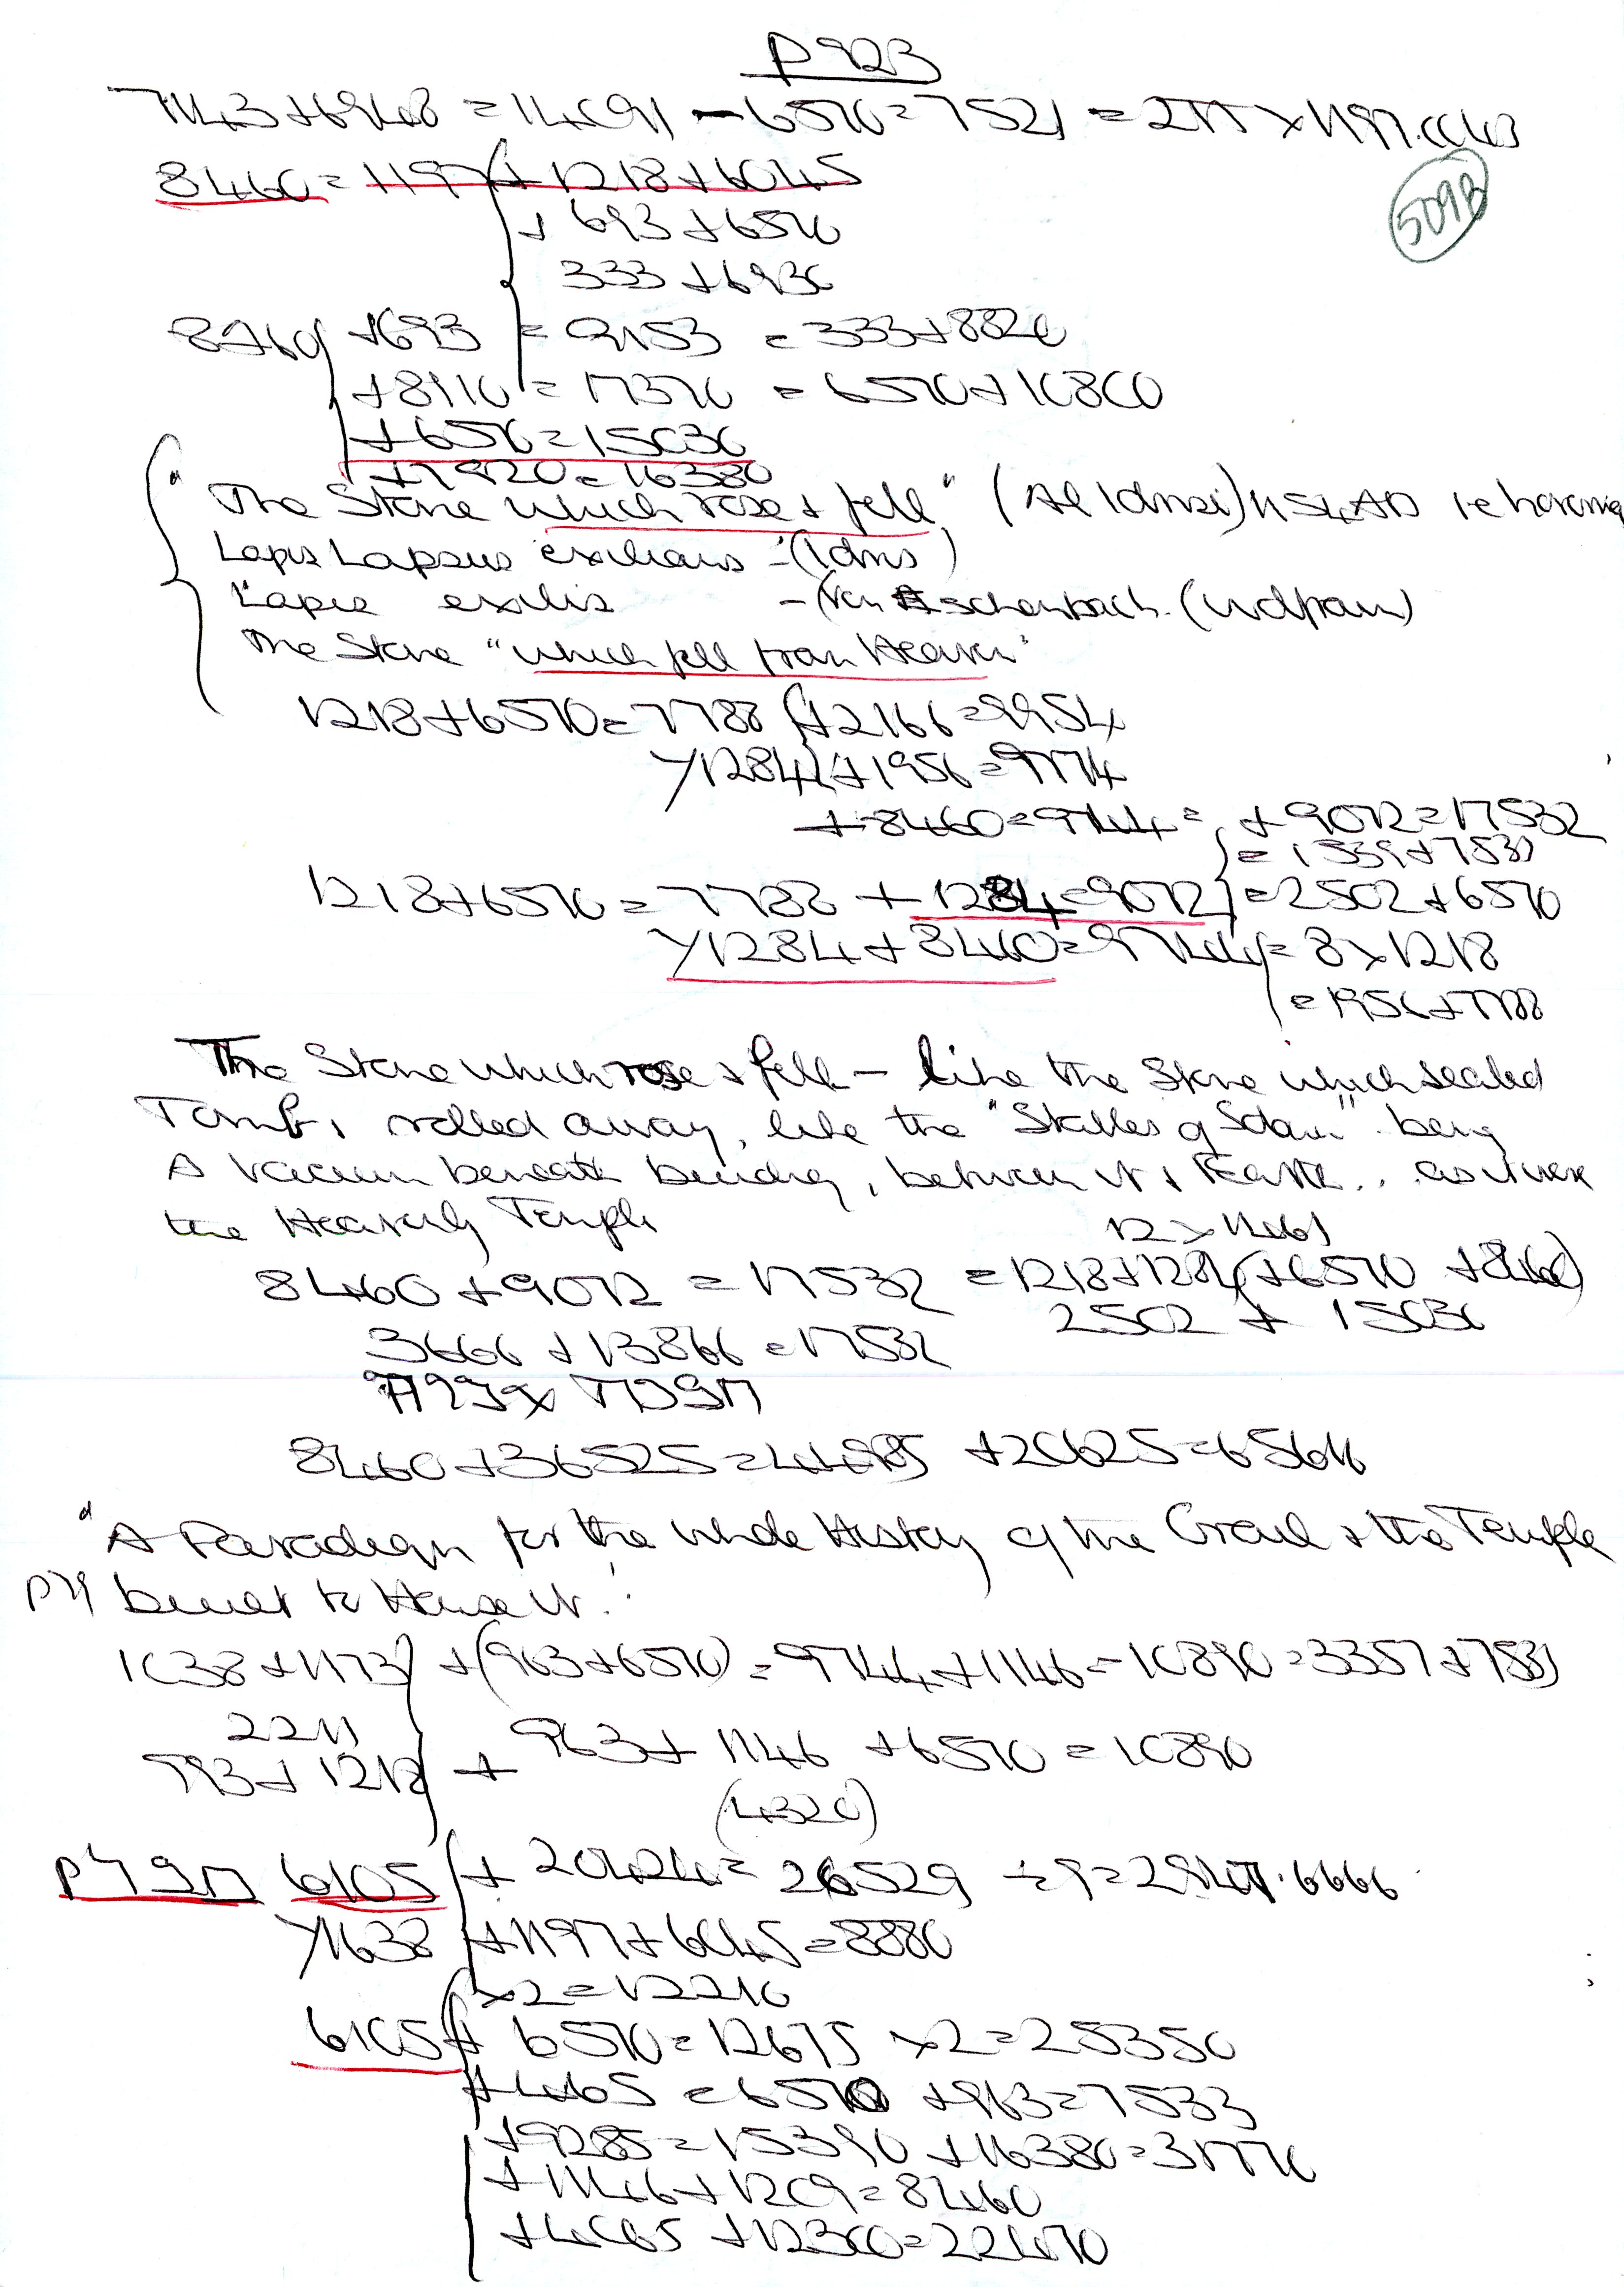 P923
7143+6948 = 14091 - 6570=7521 = 2π × 1197.0043
509B
8460 = 1197 + 1218 + 6045
+ 693 + 6570
333 + 6930
8460 + 693 = 9153 = 333+8820
+ 8910 = 17370 = 6570 + 10800
+ 6570 = 15030
+ 7920 = 16380
"The Stone which rose & fell" (Al Idrisi) 1154 AD
Lapis Lapsus exilians - (Idris)
"Lapis exilis - (Von Eschenbach. (Wolfram)
The Stone "which fell from Heaven"
1218+6570=7788 +2166=9954
>1284 +1956=9744
+8460=9744 = +9072=17532
= 1539+7533
1218+6570 = 7788 + 1284=9072 =2502+6570
>1284+8460=9744 = 8×1218
=1956+7788
The Stone which rose & fell - like the Stone which sealed
Tomb, rolled away, like the "Stables of Solomon" being
A vacuum beneath building, between it & Earth.. as it were
the Heavenly Temple
12 × 1461
8460 + 9072 = 17532 = 1218+1284 (+6570 +8460)
2502 + 15030
3666 + 13866 = 17532
8460+36525=44985 +20625=65610
"A Paradigm for the whole History of the Grail & the Temple
built to House it."
1038+1173 + (963+6570) = 9744+1146 = 10890 = 3357+7533
2211
993+1218 + 963+ 1146 +6570 = 10890
(4320)
6105 + 20424= 26529 ÷9=2947.6666
>1638 +1197+6045=8880
×2=12210
6105 + 6570=12675 ×2=25350
+465 =6570 +963=7533
+9285=15390 +16380=31770
+1146+1209=8460
+4065 +12300=22470